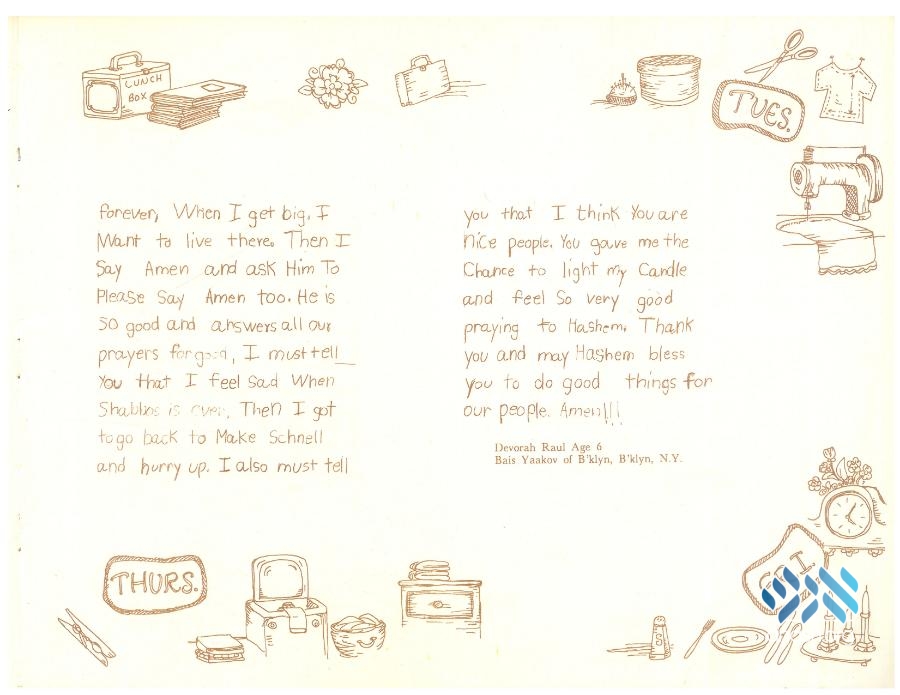 LUNCH
BOX
TUES.
forever, When I get big, I
Want to live there. Then I
Say Amen and ask Him To
Please Say Amen too. He is
SO good and answers all our
prayers for good, I must tell
You that I feel Sad When
Shabbos is over, Then I got
to go back to Make Schnell
and hurry up. I also must tell
you that I think You are
nice people. You gave me the
Chance to light my Candle
and feel So very good
praying to Hashem. Thank
you and may Hashem bless
you to do good things for
our people. Amen!!!
Devorah Raul Age 6
Bais Yaakov of B'klyn, B'klyn, N.Y.
THURS.
FRI.